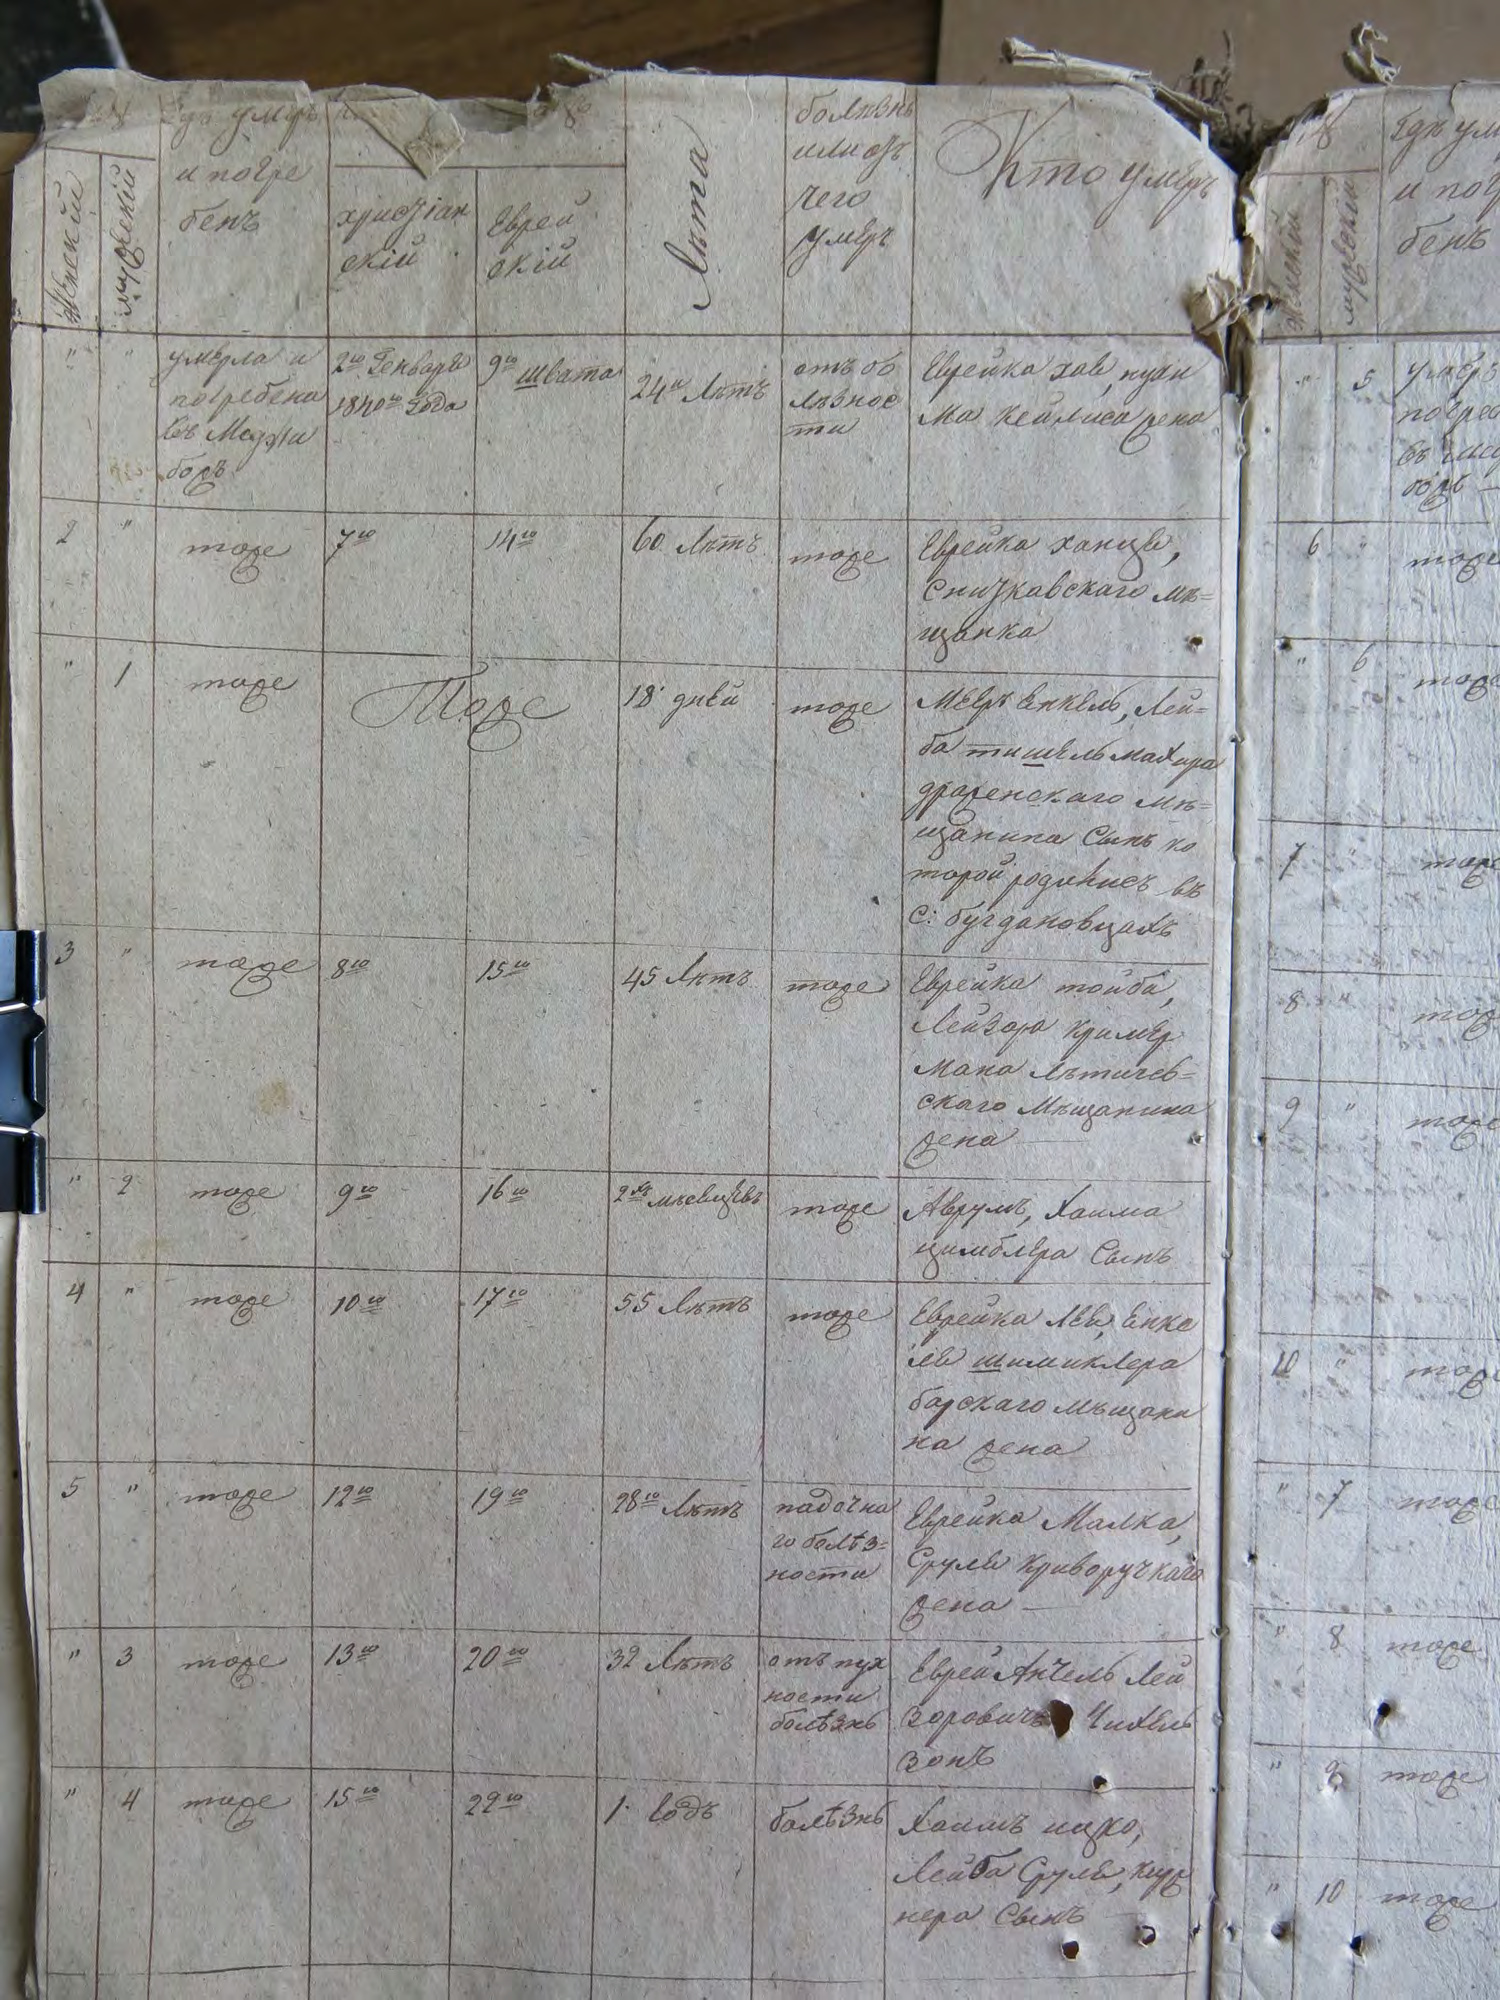 Женскій
мужескій
Гдѣ умеръ
и погре
бенъ
христіан
скій
Еврей
скій
Лѣта
болѣзнь
или отъ
чего
умеръ
Кто умеръ
" " умерла и
погребена
въ Межи
божѣ
2го Генваря
1840го Года
9го швата
24 Лѣтъ
отъ бо
лѣзнос
ти
Еврейка Хая,
ма Кейлиса жена
2 " тоже 7го 14го 60 Лѣтъ тоже Еврейка Ханця,
Сниткавскаго мѣ=
щанка
" 1 тоже Тоже 18 дней тоже Мееръ Енкель, Лей=
ба тишельмахира
драженскаго мѣ=
щанина Сынъ ко
торой родились въ
с: бугдановцахъ
3 " тоже 8го 15го 45 Лѣтъ тоже Еврейка тойба,
Лейзора Кример
мана Лѣтичев=
скаго мѣщанина
жена
" 2 тоже 9го 16го 2хъ мѣсяцевъ тоже Аврумъ, Хаима
цимблера Сынъ
4 " тоже 10го 17го 55 Лѣтъ тоже Еврейка Лея, Енке
ля шимиклера
барскаго мѣщани
на жена
5 " тоже 12го 19го 28го Лѣтъ падочна
го болѣз=
ности
Еврейка Малка,
Сруля Криворучкаго
жена
" 3 тоже 13го 20го 32 Лѣтъ отъ пух
ности
болѣзнь
Еврей Анчель Лей
зоровичъ Чихель
зонъ
" 4 тоже 15го 22го 1 Годъ болѣзнь Хаимъ ицко,
Лейба Сруля, Кур
нера Сынъ
Женскій
мужескій
Гдѣ ум
и погр
бенъ
" 5 умеръ
погреб
въ Ме
божѣ
6 " тоже
" 6 тоже
7 " тоже
8 " тоже
9 " тоже
10 " тоже
" 7 тоже
" 8 тоже
" 9 тоже
" 10 тоже